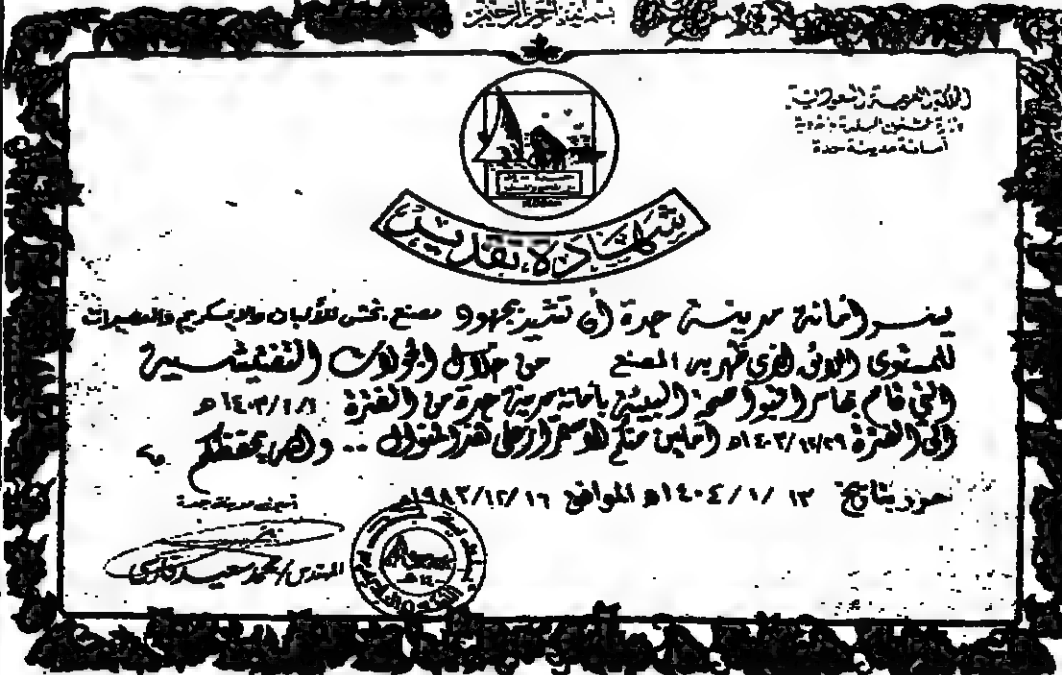 بسم الله الرحمن الرحيم
المملكة العربية السعودية
وزارة الشئون البلدية والقروية
أمانة مدينة جدة
شهادة تقدير
يسر أمانة مدينة جدة أن تشيد بجهود مصنع بخش للألبان والايسكريم والعصيرات
للمستوى اللائق الذي ظهر به المصنع من خلال الجولات التفتيشية
التي قام بها مراقبوا صحة البيئة بأمانة مدينة جدة من الفترة ١٤٠٣/١/١هـ
الى الفترة ١٤٠٣/١٢/٢٩هـ آملين منكم الاستمرار على هذا المنوال .. والله يحفظكم
حرر بتاريخ ١٣ /١/ ١٤٠٤هـ الموافق ١٩٨٣/١٢/١٦م
أمين مدينة جدة
المهندس/محمد سعيد فارسي